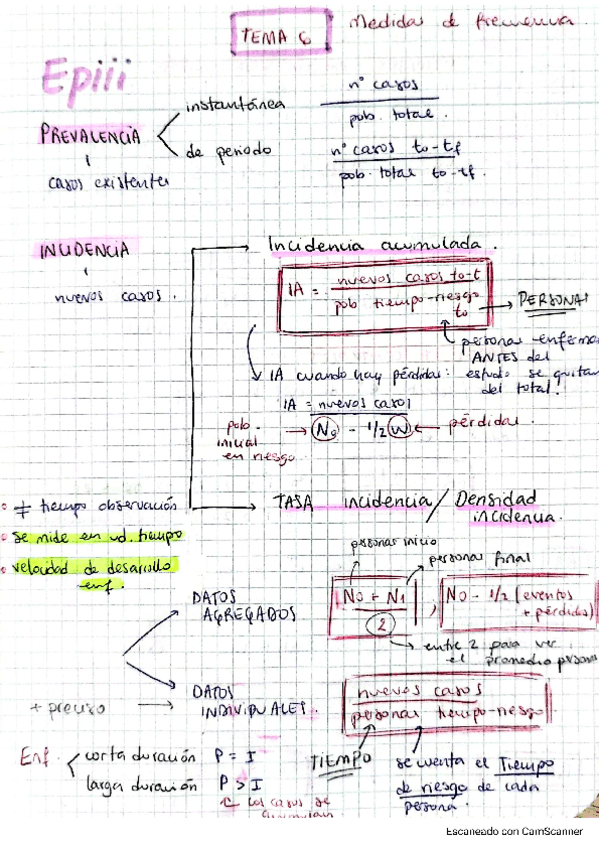 TEMA 6 Medidas de frecuencia.
Epiii
PREVALENCIA
casos existentes
instantánea
nº casos
pob. total.
de periodo
nº casos to-tf
pob. total to-tf.
INCIDENCIA
nuevos casos.
Incidencia acumulada.
IA = nuevos casos to-t
pob tiempo-riesgo to
PERSONAS
personas enfermas
ANTES del
estudio se quitan
del total!
IA cuando hay pérdidas:
IA = nuevos casos
No - 1/2 W
pérdidas.
pob.
inicial
en riesgo
TASA incidencia / Densidad
incidencia.
≠ tiempo observación
se mide en ud. tiempo
velocidad de desarrollo
enf.
personas inicio
personas final
DATOS
AGREGADOS
No + N1
2
, No - 1/2 (eventos
+ pérdidas)
entre 2 para ver
el promedio
+ preciso
DATOS
INDIVIDUALES
nuevos casos
personas tiempo-riesgo
TIEMPO
se cuenta el Tiempo
de riesgo de cada
persona.
Enf.
corta duración P = I
larga duración P > I
los casos se
acumulan
Escaneado con CamScanner